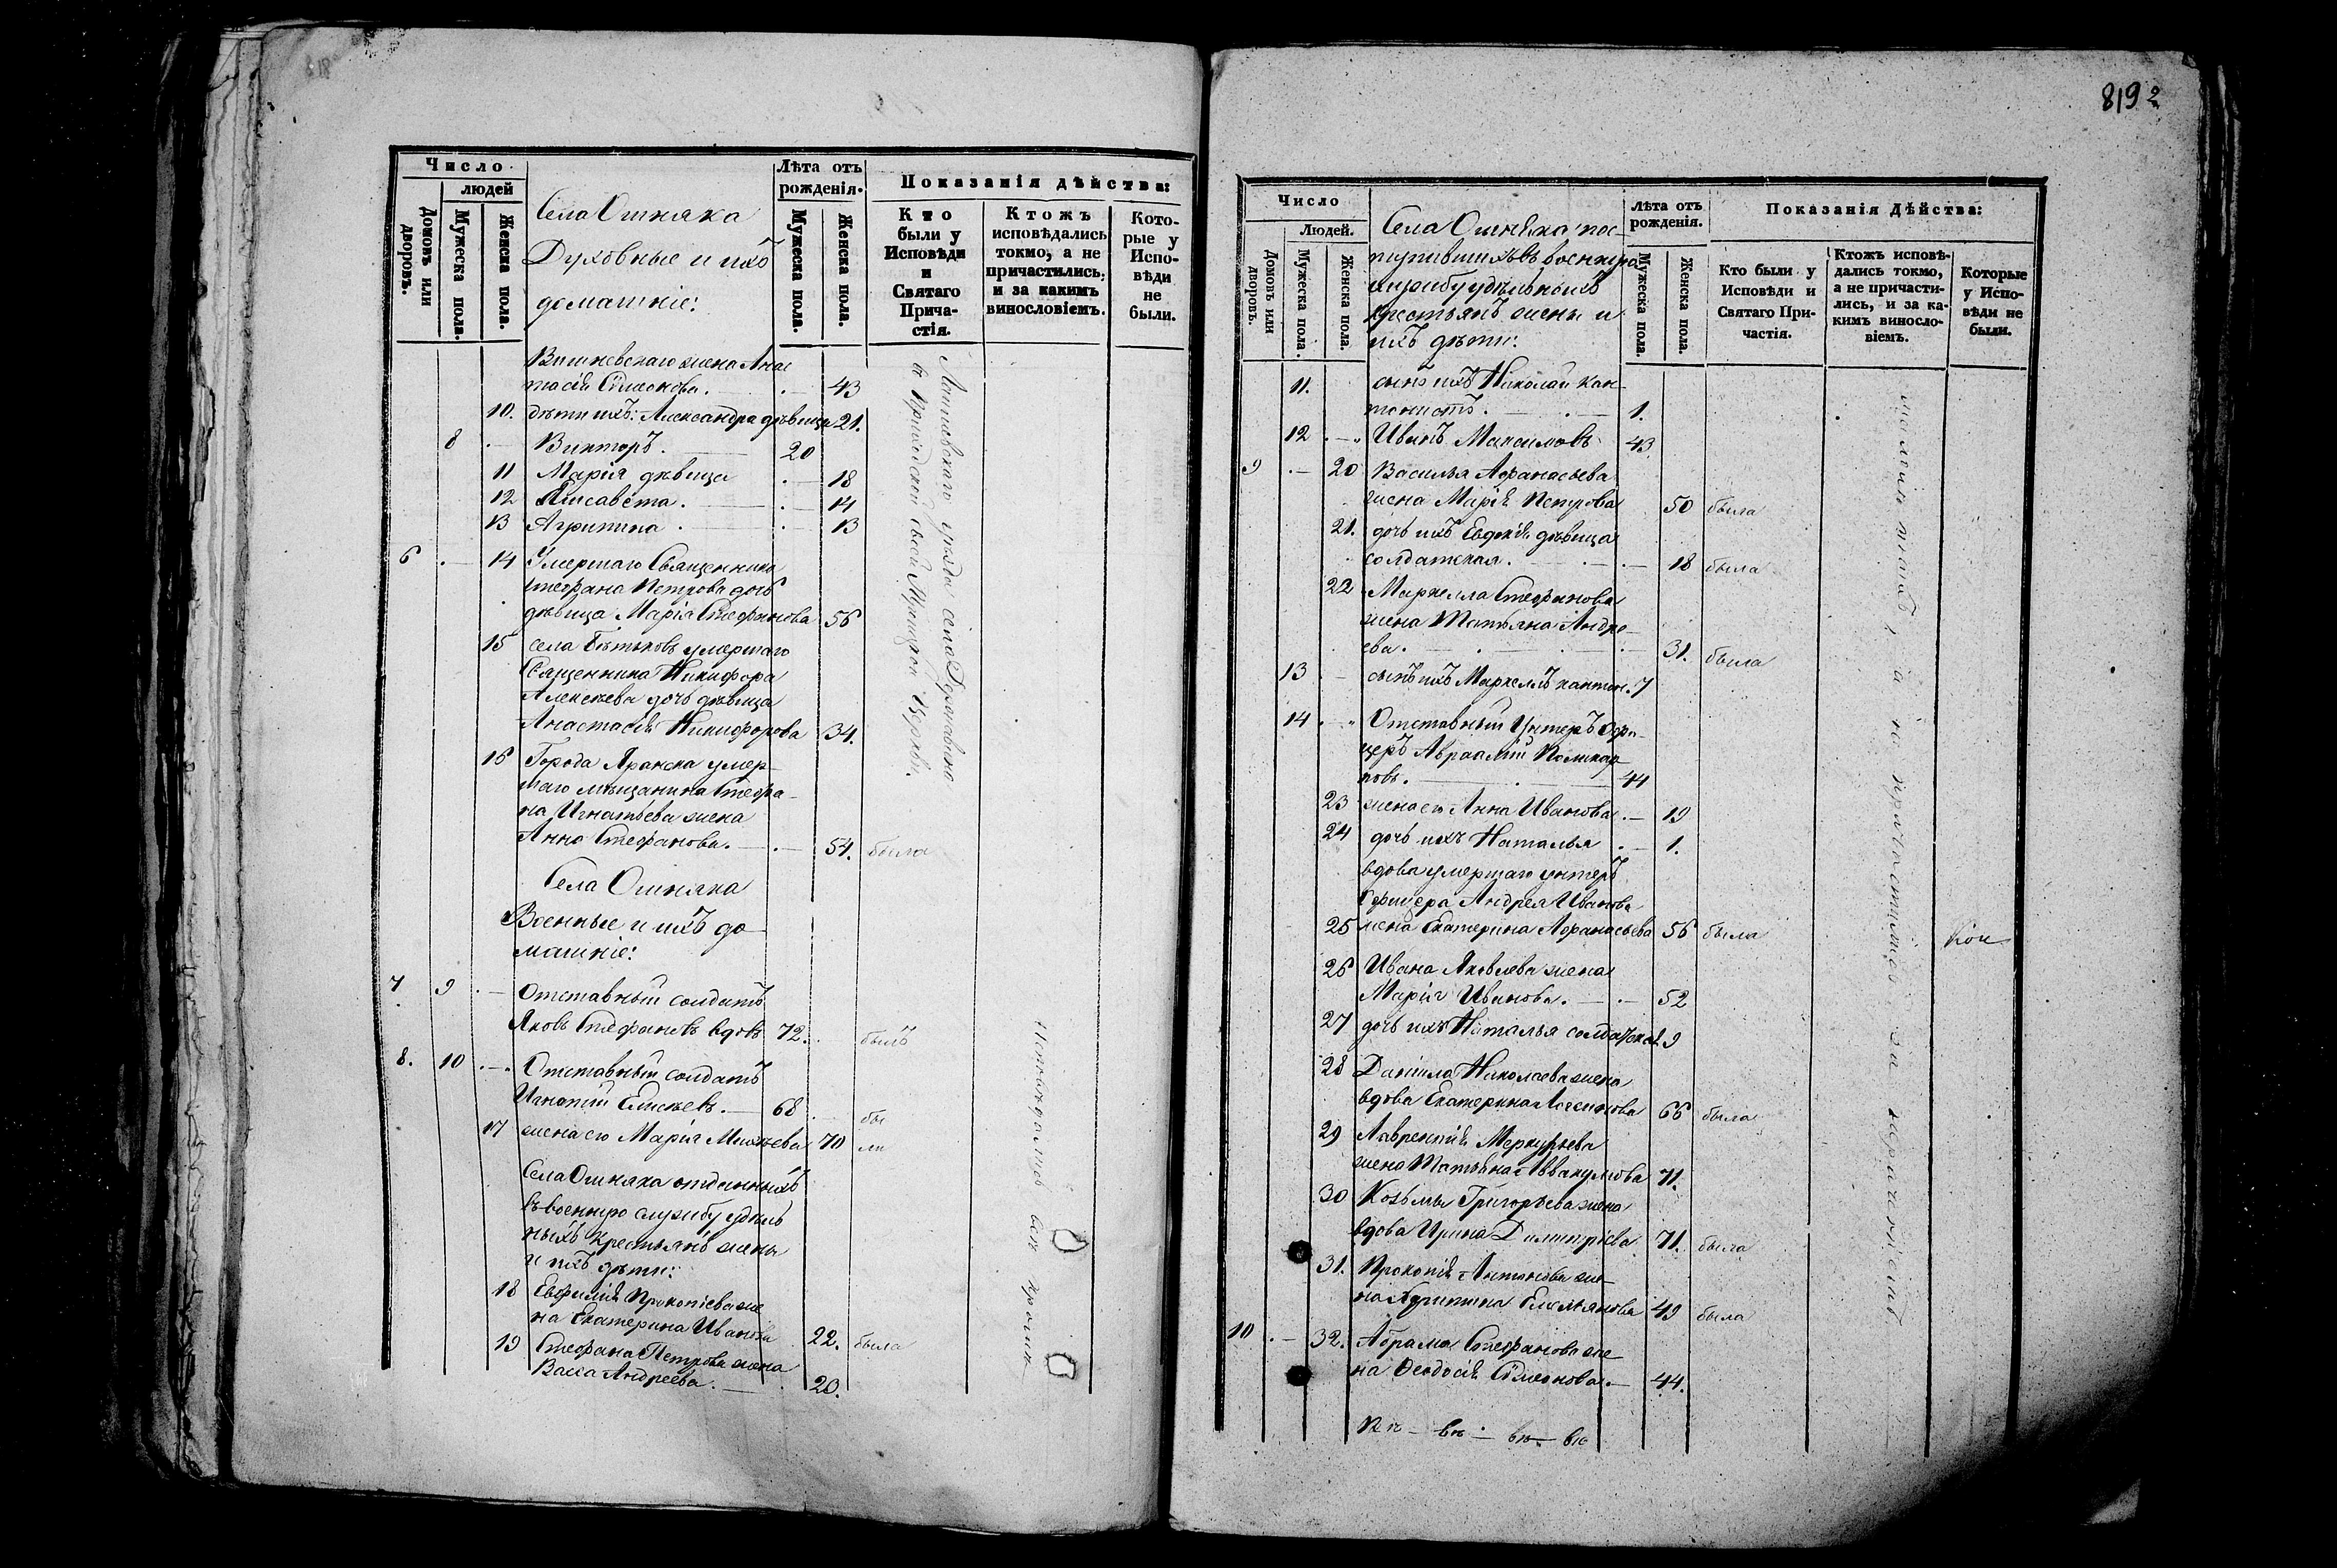 Число
людей
Домовъ или дворовъ.
Мужеска пола.
Женска пола.
Села Ошняка
Духовные и ихъ
домашніе:
Лѣта отъ
рожденія.
Мужеска пола.
Женска пола.
Показанія дѣйства:
Кто
были у
Исповѣди
и
Святаго
Прича-
стія.
Ктожъ
исповѣдались
токмо, а не
причастились,
и за какимъ
винословіемъ.
Кото-
рые у
Испо-
вѣди
не
были.
Вишневскаго жена Анас
тасія Симеонова. 43
10. дѣти ихъ: Александра дѣвица 21.
8 Викторъ. 20
11 Марія дѣвица 18
12 Елисавета. 14
13 Агрипина 13
6 14 Умершаго Священника
Стефана Петрова дочь
дѣвица Марія Стефанова 56
15 села умершаго
Священника Никифора
Алексѣева дочь дѣвица
Анастасія Никифорова 34.
16 Города Яранска умер-
шаго мѣщанина Стефа-
на Игнатьева жена
Анна Стефанова. 54. была
уѣзда села
въ приходской своей церкви.
Села Ошняка
Военные и ихъ до
машніе:
7 9 Отставный солдатъ
Яковъ Стефановъ вдовъ 72. былъ
8. 10 Отставный солдатъ
Игнатій Елисѣевъ. 68 бы
17 жена его Марія Михѣева 70 ли
Села Ошняка отданныхъ
въ военную службу удѣль
ныхъ крестьянъ жены
и ихъ дѣти:
18 Евфимія Прокопіева же
на Екатерина Иванова 22. была
19 Стефана Петрова жена
Васса Андреева. 20.
Исповѣдались всѣ
819
Число
Людей.
Домовъ или дворовъ.
Мужеска пола.
Женска пола.
Села Ошняка пос-
тупившихъ въ военную
службу удѣльныхъ
крестьянъ жены и
ихъ дѣти:
Лѣта отъ
рожденія.
Мужеска пола.
Женска пола.
Показанія Дѣйства:
Кто были у
Исповѣди и
Святаго При-
частія.
Ктожъ исповѣ-
дались токмо,
а не причасти-
лись, и за ка-
кимъ виносло-
віемъ.
Которые
у Испо-
вѣди не
были.
11. сынъ ихъ Николай кан-
тонистъ. 1.
12 Иванъ Максимовъ 43
9 20 Василья Афанасьева
жена Марія Петрова 50 была
21. дочь ихъ Евдокія дѣвица
солдатская. 18 была
22 Маркелла Стефанова
жена Татьяна Андре-
ева. 31. была
13 сынъ ихъ Маркеллъ кантон. 7
14 Отставный Унтеръ Офи-
церъ Авраамій Поликар
повъ. 44
23 жена его Анна Иванова 19
24 дочь ихъ Наталья 1.
вдова умершаго унтеръ
Офицера Андрея Иванова
25 жена Екатерина Афанасьева 56 была
26 Ивана Яковлева жена
Марія Иванова. 52
27 дочь ихъ Наталья солдатская 9
28 Даніила Николаева жена
вдова Екатерина 66 была
29 Лаврентія Меркурьева
жена Татьяна Аввакумова 71.
30 Козьмы Григорьева жена
вдова Ирина Димитріева 71. была
31. Прокопія Антонова же-
на Агрипина Емельянова 49 была
10 32. Абрама Стефанова же
на Ѳеодосія Симеонова. 44.
а не причастились за